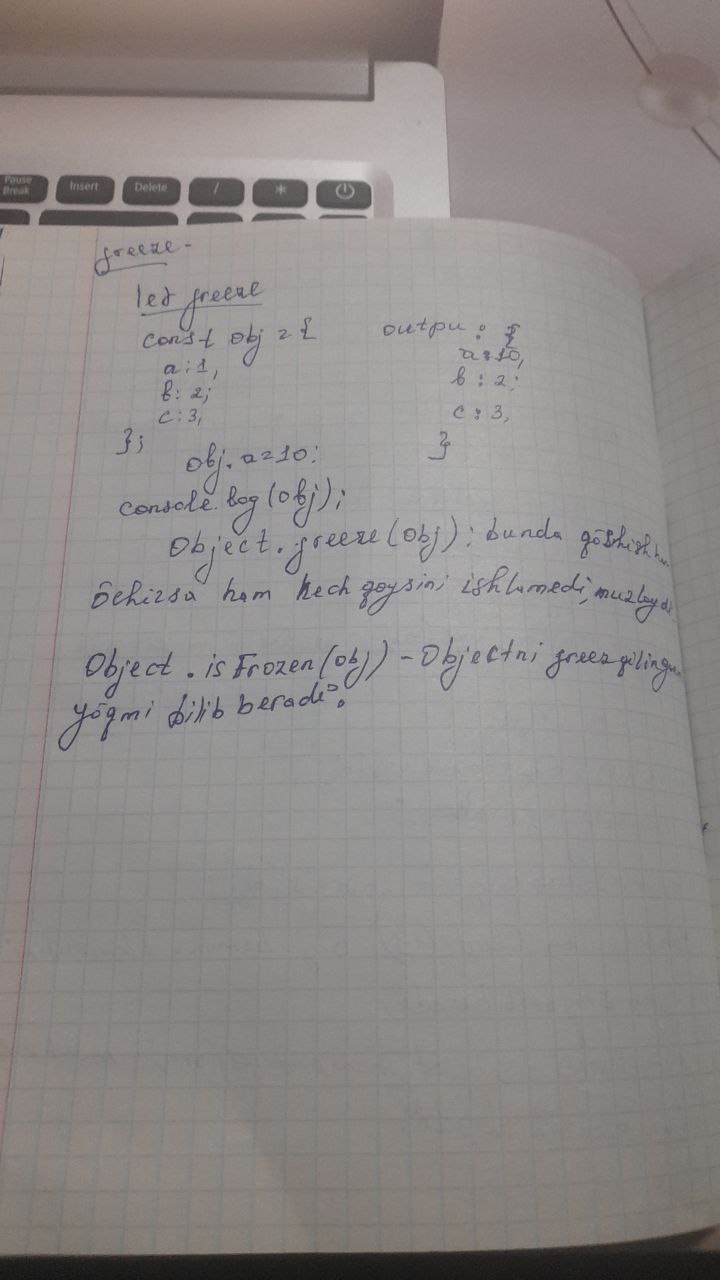 Pause Break Insert Delete / *
freeze-
let freeze
const obj = { output : {
a : 1, a : 10,
b : 2; b : 2;
c : 3, c : 3,
}; }
obj. a = 10;
console.log(obj);
Object. freeze(obj); bunda qõshish
õchirsa ham hech qaysini ishlamedi, muzlaydi.
Object . isFrozen(obj) - Objectni freez qilingan
yõqmi bilib beradi.